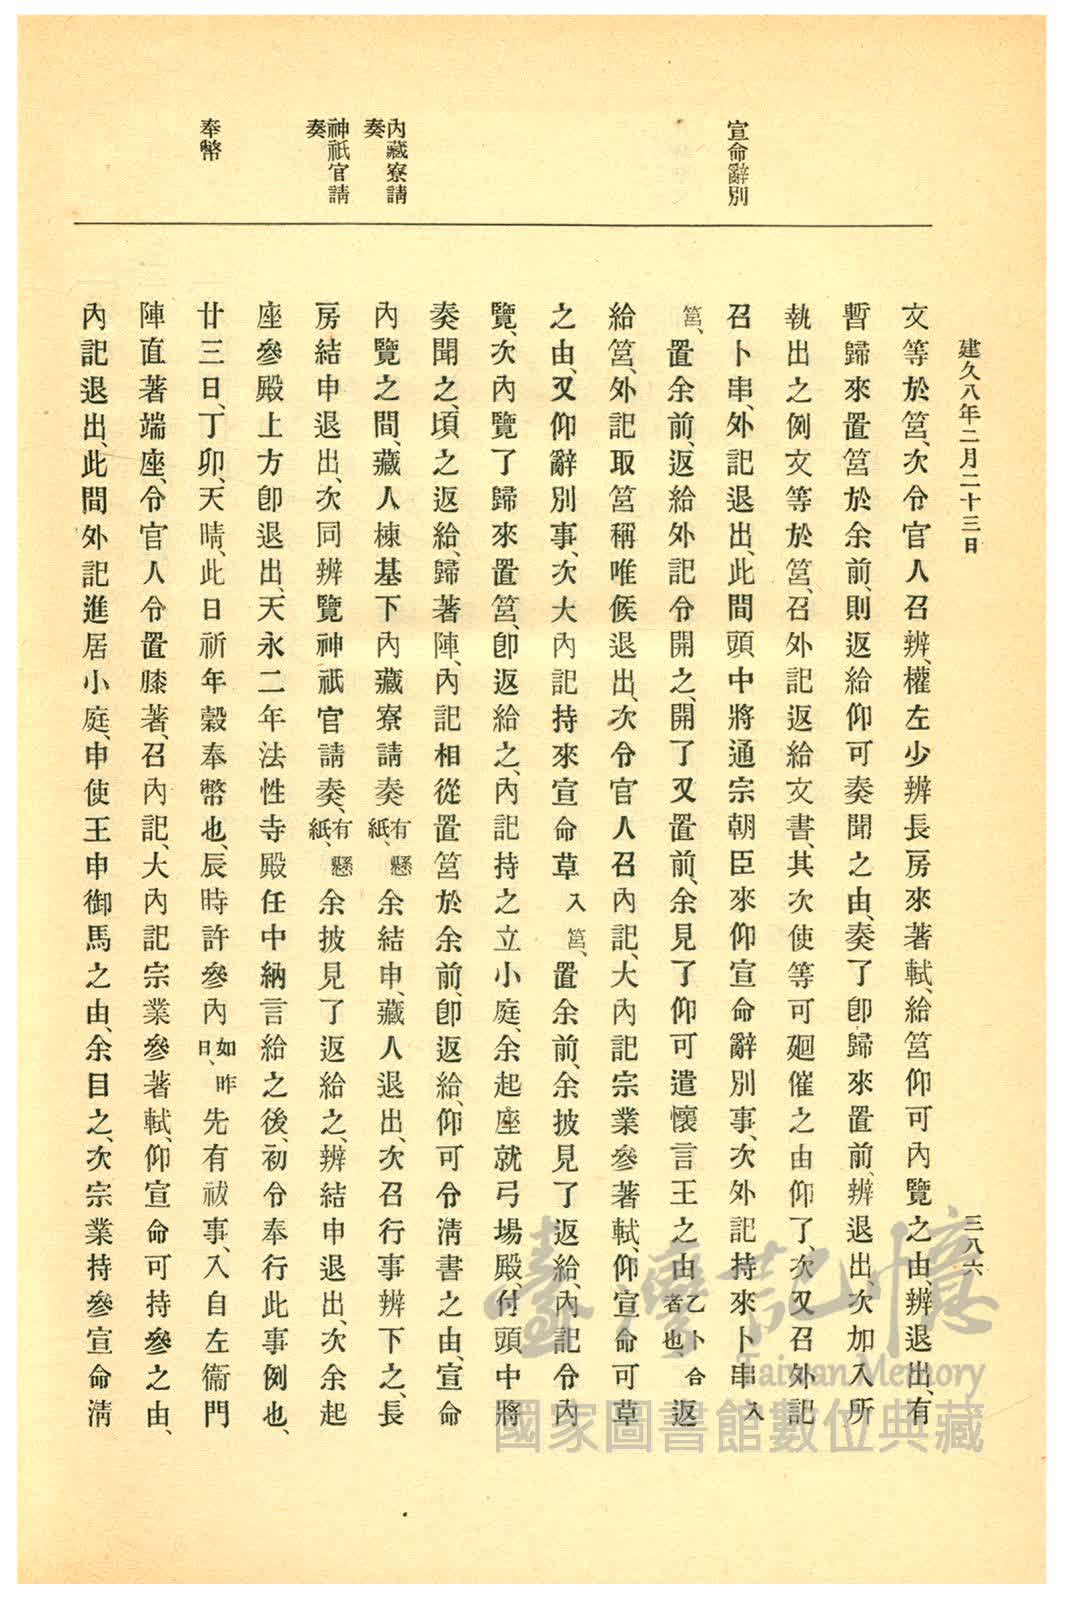 建久八年二月二十三日
三八六
宣命辭別
內藏寮請
奏
神祇官請
奏
奉幣
文等於筥、次令官人召辨、權左少辨長房來著軾、給筥仰可內覽之由、辨退出、有
暫歸來置筥於余前、則返給仰可奏聞之由、奏了卽歸來置前、辨退出、次加入所
執出之例文等於筥、召外記返給文書、其次使等可廻催之由仰了、次又召外記
召卜串、外記退出、此間頭中將通宗朝臣來仰宣命辭別事、次外記持來卜串入
筥、置余前、返給外記令開之、開了又置前、余見了仰可遣懷言王之由乙卜合者也、返
給筥、外記取筥稱唯候退出、次令官人召內記、大內記宗業參著軾、仰宣命可草
之由、又仰辭別事、次大內記持來宣命草入筥、置余前、余披見了返給、內記令內
覽、次內覽了歸來置筥、卽返給之、內記持之立小庭、余起座就弓場殿、付頭中將
奏聞之、頃之返給、歸著陣、內記相從置筥於余前、卽返給、仰可令淸書之由、宣命
內覽之間、藏人棟基下內藏寮請奏有懸紙、余結申、藏人退出、次召行事辨下之、長
房結申退出、次同辨覽神祇官請奏、有懸紙、余披見了返給之、辨結申退出、次余起
座參殿上方卽退出、天永二年法性寺殿任中納言給之後、初令奉行此事例也、
廿三日、丁卯、天晴、此日祈年穀奉幣也、辰時許參內如昨日、先有祓事、入自左衞門
陣直著端座、令官人令置膝著、召內記、大內記宗業參著軾、仰宣命可持參之由、
內記退出、此間外記進居小庭、申使王申御馬之由、余目之、次宗業持參宣命淸
臺灣記憶
Taiwan Memory
國家圖書館數位典藏